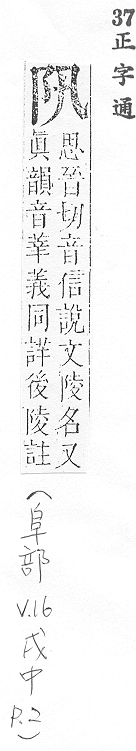 37正字通
阠
思晉切音信說文陵名又
眞韻音莘義同詳後陵註
(阜部
V.16
戌中
P.2)